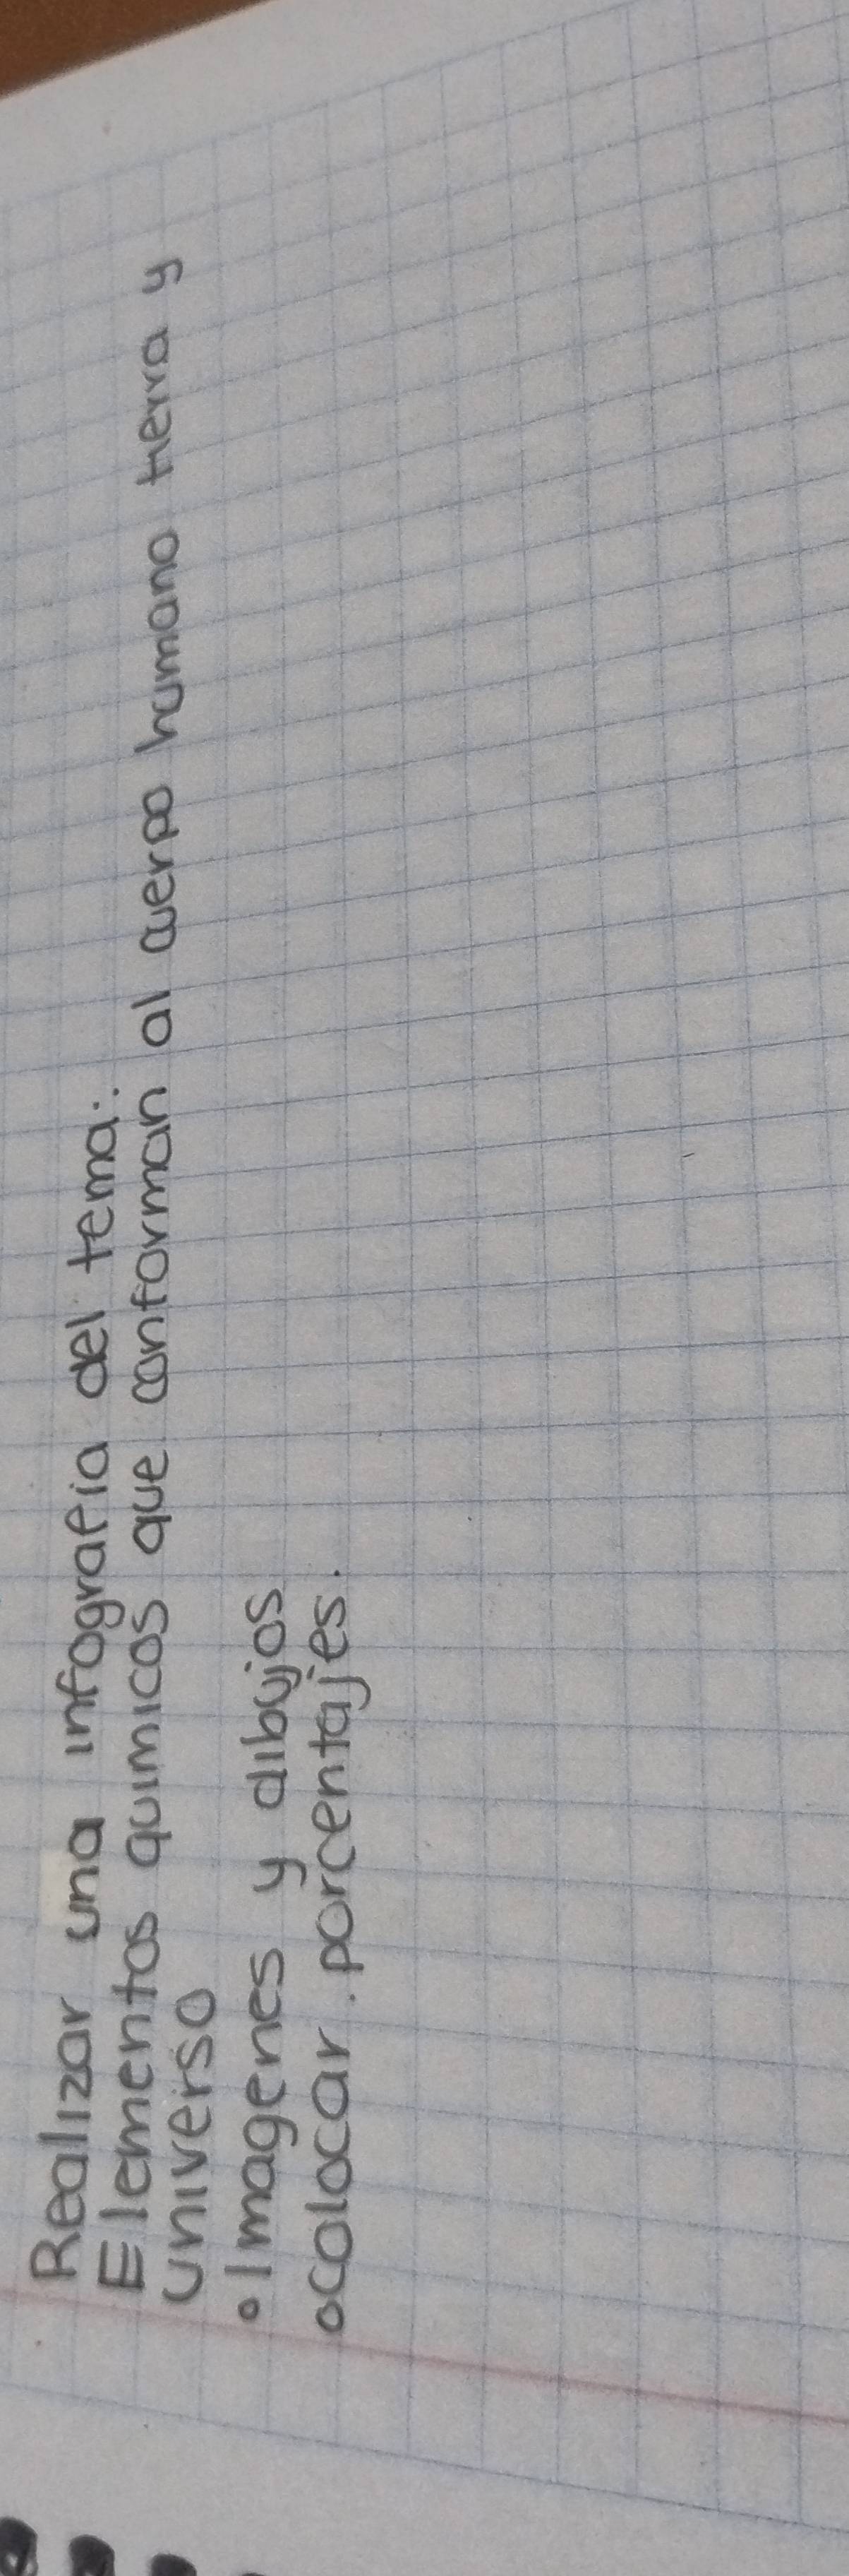 Realizar una infografia del tema:
Elementos quimicos que conforman al cuerpo humano tierra y
universo
• Imagenes y dibujos
• colocar porcentajes.